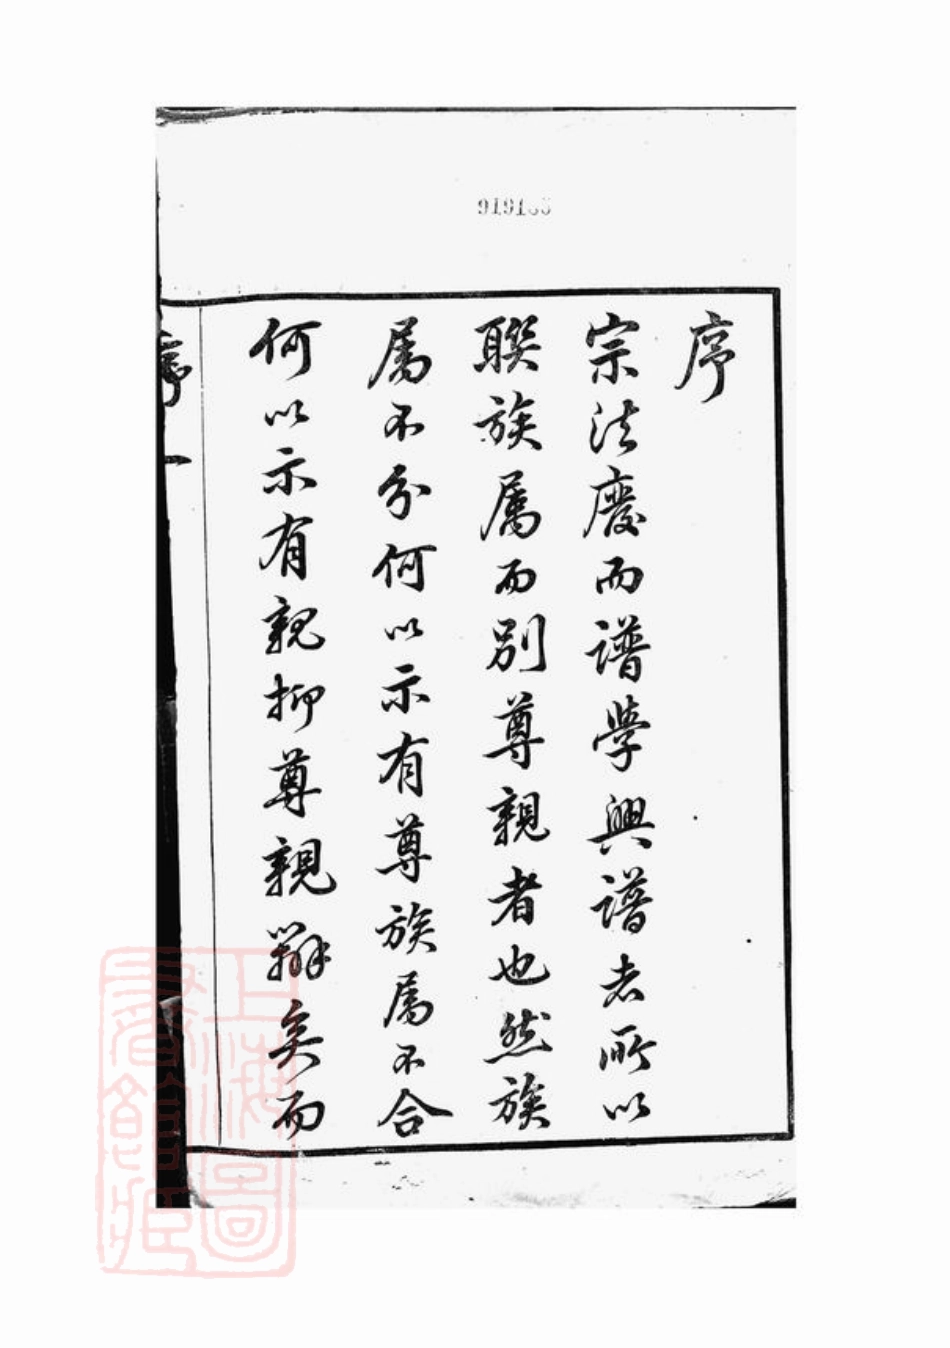 919133
序
宗法廢而譜學興譜者所以
聯族屬而別尊親者也然族
屬不分何以示有尊族屬不合
何以示有親抑尊親辨矣而
序一
上海圖
書館藏